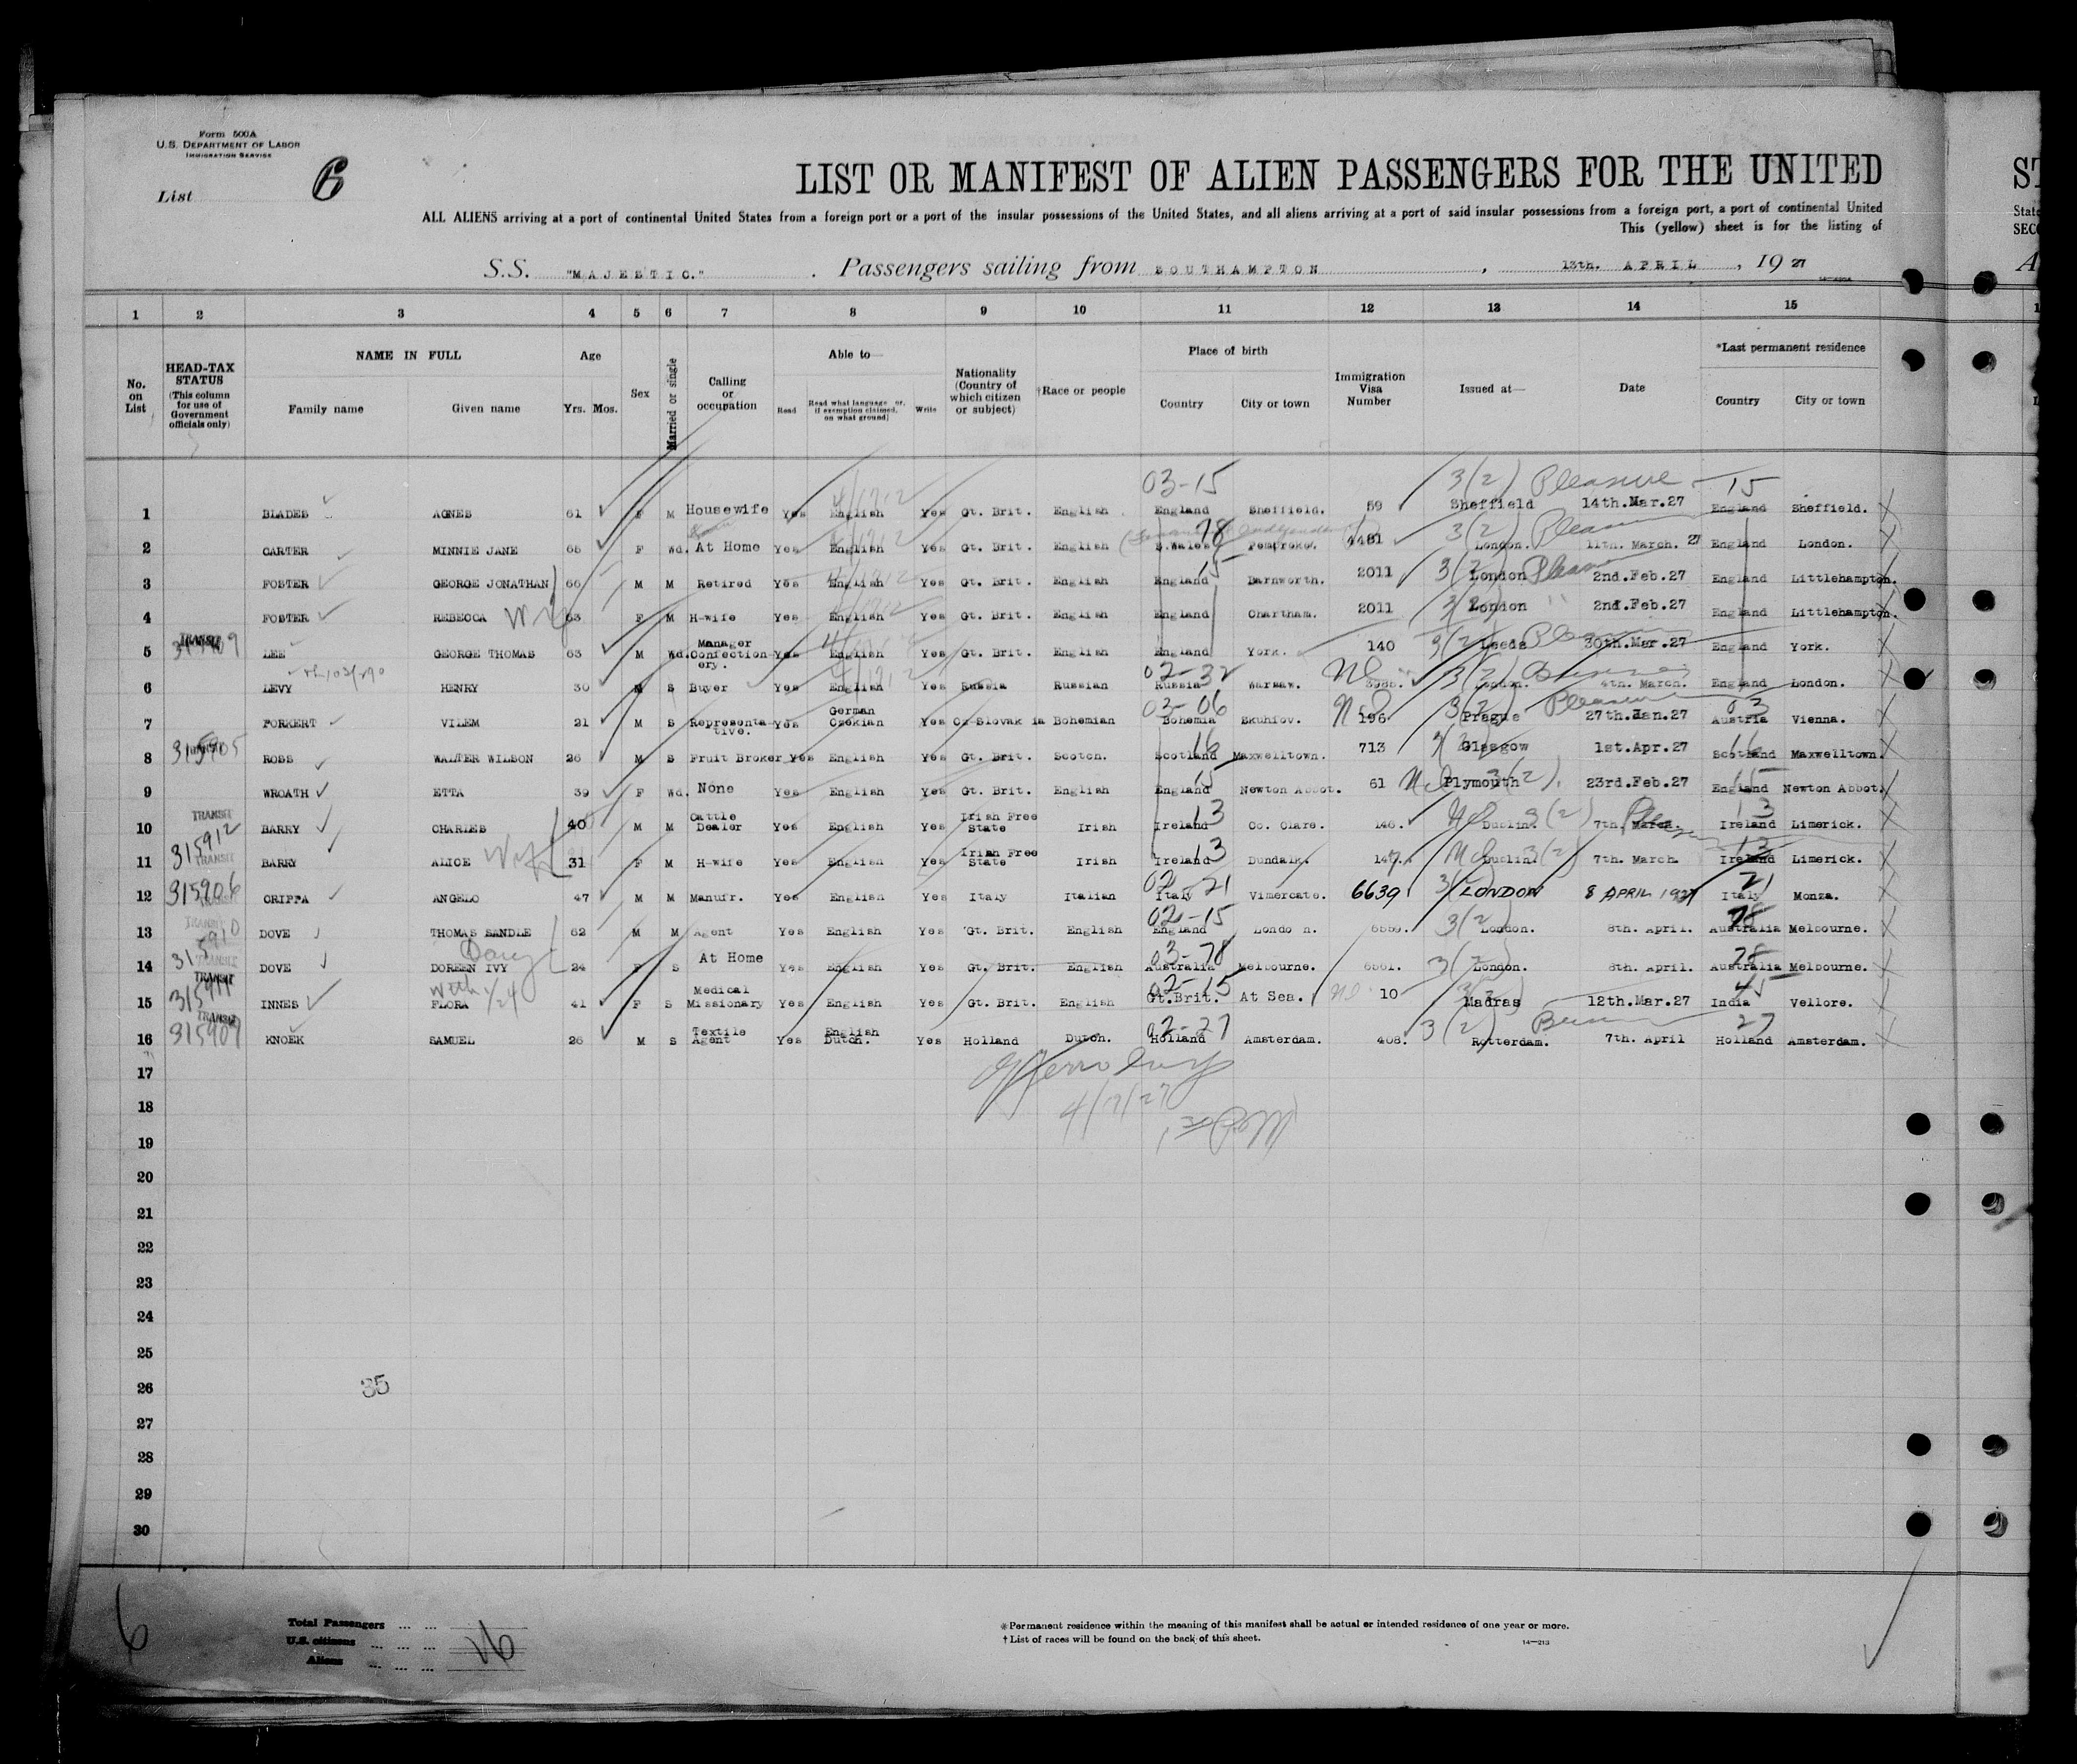 Form 500A
U.S. DEPARTMENT OF LABOR
IMMIGRATION SERVICE
List 6
LIST OR MANIFEST OF ALIEN PASSENGERS FOR THE UNITED
ALL ALIENS arriving at a port of continental United States from a foreign port or a port of the insular possessions of the United States, and all aliens arriving at a port of said insular possessions from a foreign port, a port of continental United
This (yellow) sheet is for the listing of
S.S. "MAJESTIC." Passengers sailing from SOUTHAMPTON, 13th. APRIL, 19 27
1 2 3 4 5 6 7 8 9 10 11 12 13 14 15
No. on List
HEAD-TAX STATUS (This column for use of Government officials only)
NAME IN FULL
Family name Given name
Age
Yrs. Mos.
Sex
Married or single
Calling or occupation
Able to—
Read Read what language or, if exemption claimed, on what ground Write
Nationality (Country of which citizen or subject)
†Race or people
Place of birth
Country City or town
Immigration Visa Number
Issued at—
Date
*Last permanent residence
Country City or town
03-15 3(2) Pleasure 15
1 BLADES AGNES 61 F M Housewife Yes English Yes Gt. Brit. English England Sheffield. 59 Sheffield 14th.Mar.27 England Sheffield.
78 3(2)
2 CARTER MINNIE JANE 65 F Wd. At Home Yes English Yes Gt. Brit. English S.Wales Pembroke. 4481 London. 11th. March. 27 England London.
15 3(2) Pleasure
3 FOSTER GEORGE JONATHAN 66 M M Retired Yes English Yes Gt. Brit. English England Barnworth. 2011 London 2nd.Feb.27 England Littlehampton.
4 FOSTER REBECCA 63 F M H-wife Yes English Yes Gt. Brit. English England Chartham. 2011 London 2nd.Feb.27 England Littlehampton.
TRANSIT 315909
5 LEE GEORGE THOMAS 63 M Wd. Manager Confectionery. Yes English Yes Gt. Brit. English England York. 140 Leeds 30th.Mar.27 England York.
02-32 3(2)
6 LEVY HENRY 30 M S Buyer Yes English Yes Russia Russian Russia Warsaw. London. 4th. March. England London.
03-06 3(2) Pleasure 03
7 FORKERT VILEM 21 M S Representative. Yes German Czekian Yes Cz-Slovak ia Bohemian Bohemia Skuhfov. 196 Prague 27th.Jan.27 Austria Vienna.
315905 16 16
8 ROSS WALTER WILSON 26 M S Fruit Broker Yes English Yes Gt. Brit. Scotch. Scotland Maxwelltown. 713 Glasgow 1st.Apr.27 Scotland Maxwelltown.
15 3(2) 15
9 WROATH ETTA 39 F Wd. None Yes English Yes Gt. Brit. English England Newton Abbot. 61 Plymouth 23rd.Feb.27 England Newton Abbot.
TRANSIT 315912 13 3(2) 13
10 BARRY CHARLES 40 M M Cattle Dealer Yes English Yes Irish Free State Irish Ireland Co. Clare. 146. Dublin. 7th. March. Ireland Limerick.
TRANSIT 13 3(2) 13
11 BARRY ALICE 31 F M H-wife Yes English Yes Irish Free State Irish Ireland Dundalk. 147. Dublin. 7th. March. Ireland Limerick.
315906 02-21 3(2) 21
12 CRIPPA ANGELO 47 M M Manufr. Yes English Yes Italy Italian Italy Vimercate. 6639 LONDON 8 APRIL 1927 Italy Monza.
TRANSIT 02-15 3(2) 78
13 DOVE THOMAS SANDLE 62 M M Agent Yes English Yes Gt. Brit. English England Londo n. 6559. London. 8th. April. Australia Melbourne.
315910 TRANSIT 03-78 3(2) 78
14 DOVE DOREEN IVY 24 F S At Home Yes English Yes Gt. Brit. English Australia Melbourne. 6561. London. 8th. April. Australia Melbourne.
TRANSIT 315911 02-15 45
15 INNES FLORA 41 F S Medical Missionary Yes English Yes Gt. Brit. English Gt.Brit. At Sea. 10 Madras 12th.Mar.27 India Vellore.
TRANSIT 315907 02-27 3(2) 27
16 KNOEK SAMUEL 26 M S Textile Agent Yes English Dutch. Yes Holland Dutch. Holland Amsterdam. 408. Rotterdam. 7th. April Holland Amsterdam.
17
18
19
20
21
22
23
24
25
26 35
27
28
29
30
6
Total Passengers ... ... 16
U.S. citizens ... ... ...
Aliens ... ... ...
*Permanent residence within the meaning of this manifest shall be actual or intended residence of one year or more.
†List of races will be found on the back of this sheet.
14—213